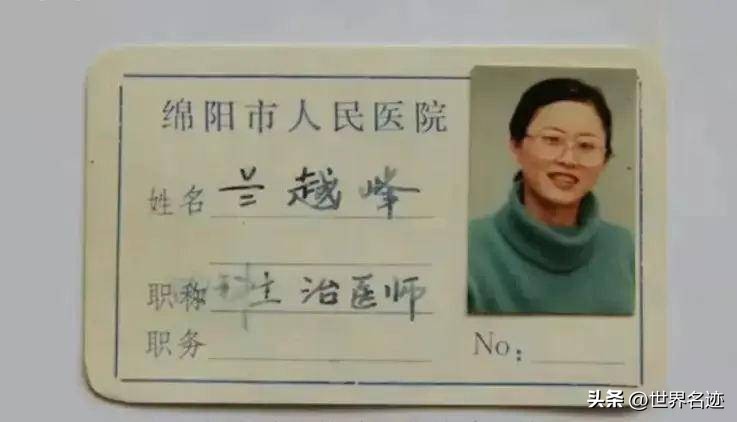 绵阳市人民医院
姓名 兰越峰
职称 主治医师
职务
No:
头条 @世界名迹